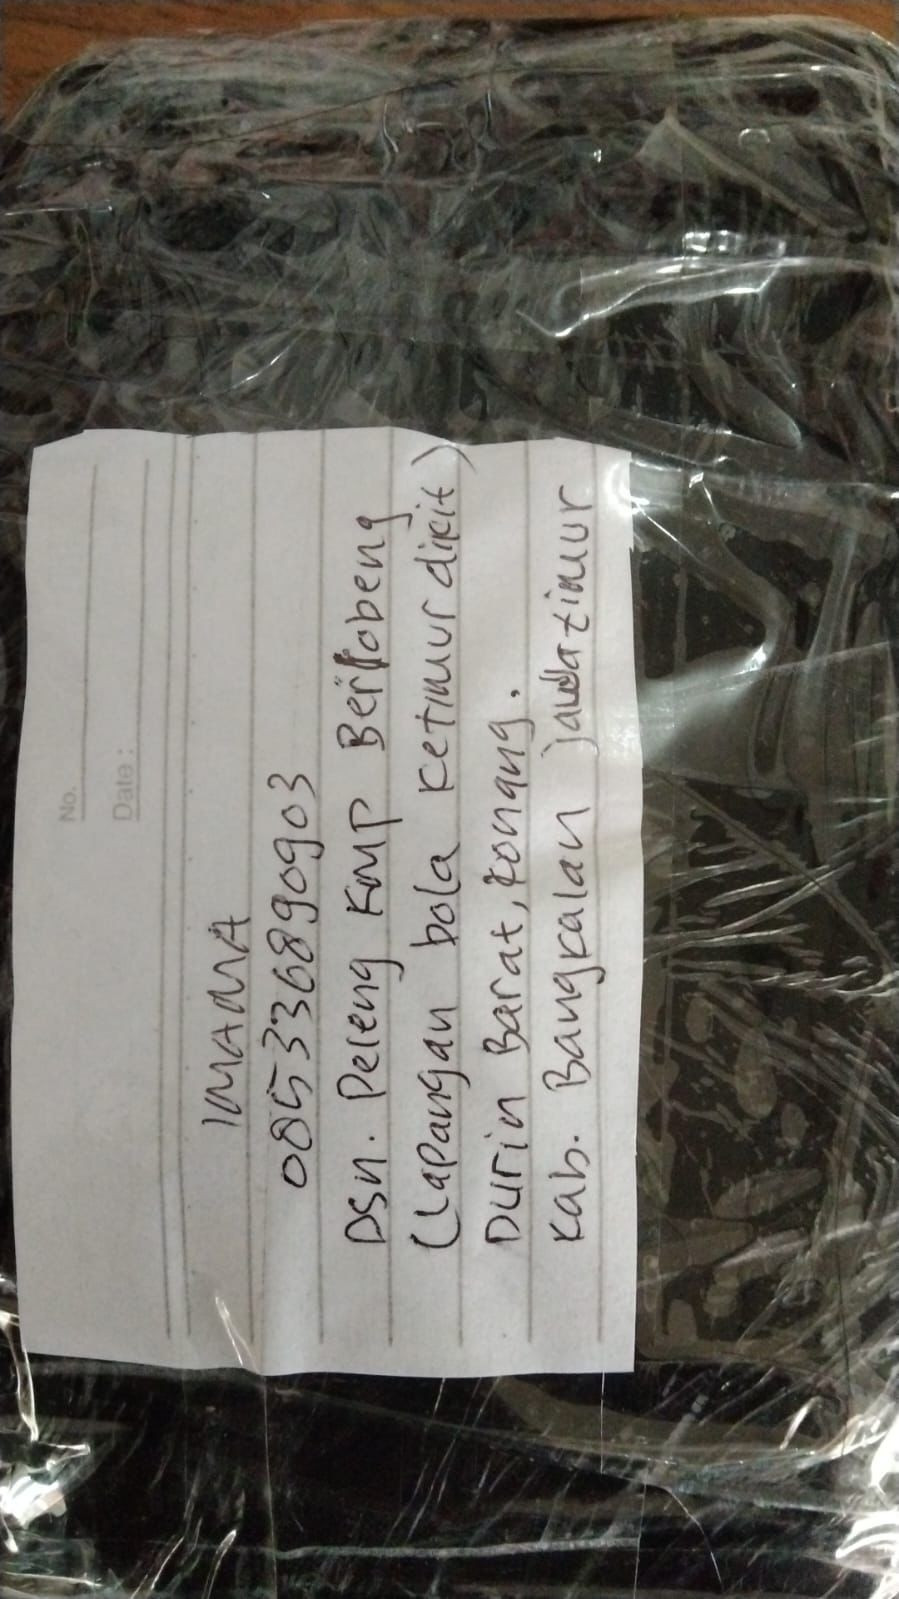 No.
Date :
IMAMA
085336890903
Dsn. Peleng KMP Berlobeng
(Lapangan bola ketimur dikit)
Durin Barat, konang.
Kab. Bangkalan jawa timur